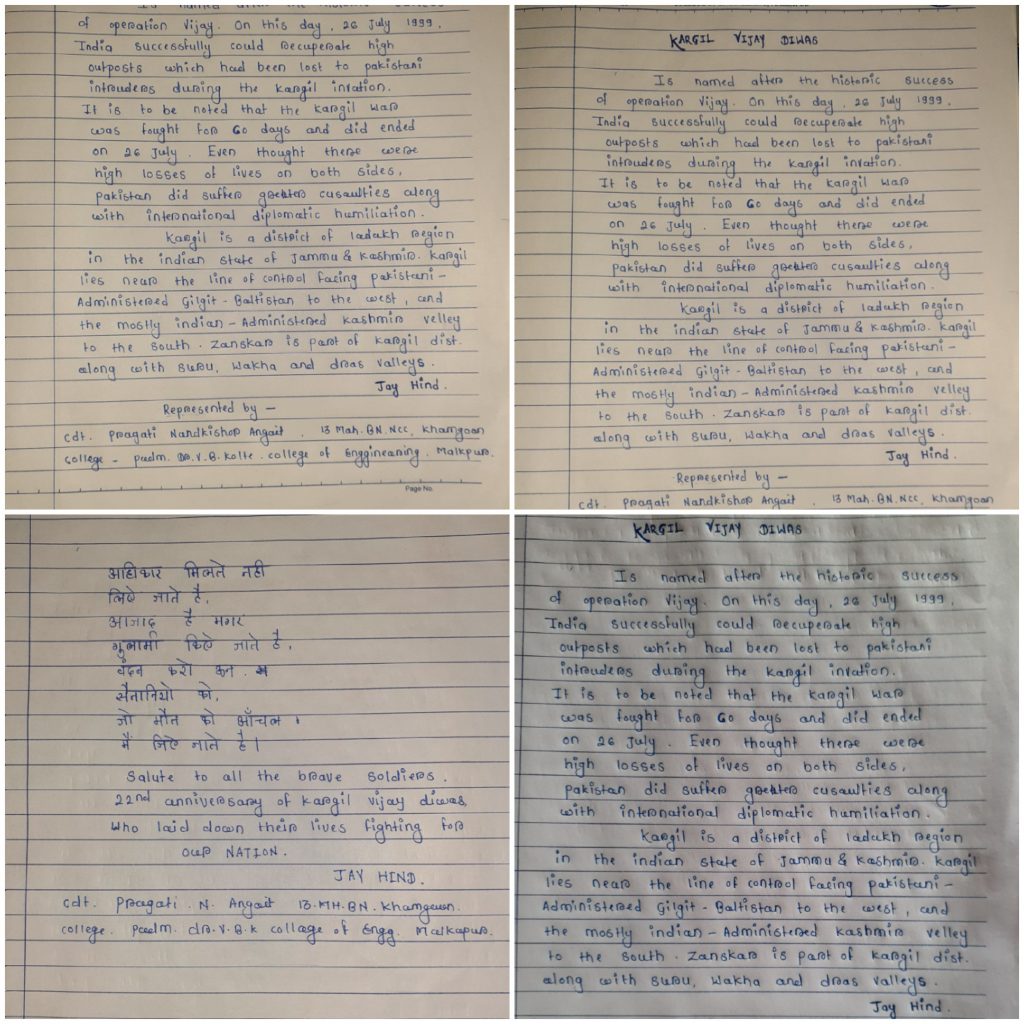 of operation Vijay. On this day, 26 July 1999,
India successfully could recuperate high
outposts which had been lost to pakistani
intruders during the kargil invation.
It is to be noted that the kargil war
was fought for 60 days and did ended
on 26 July. Even thought there were
high losses of lives on both sides,
pakistan did suffer greater cusaulties along
with international diplomatic humiliation.
kargil is a district of ladakh region
in the indian state of Jammu & Kashmir. kargil
lies near the line of control facing pakistani-
Administered Gilgit-Baltistan to the west, and
the mostly indian-Administered kashmir velley
to the south. Zanskar is part of kargil dist.
along with suru, Wakha and dras valleys.
Jay Hind.
Represented by -
cdt. Pragati Nandkishor Angait, 13 Mah.BN.NCC, Khamgoan
College - padm. DR.V.B.Kolte. college of Enggineaning. Malkpur.
Page No.
KARGIL VIJAY DIWAS
Is named after the historic success
of operation Vijay. On this day, 26 July 1999,
India successfully could recuperate high
outposts which had been lost to pakistani
intruders during the kargil invation.
It is to be noted that the kargil war
was fought for 60 days and did ended
on 26 July. Even thought there were
high losses of lives on both sides,
pakistan did suffer greater cusaulties along
with international diplomatic humiliation.
kargil is a district of ladakh region
in the indian state of Jammu & Kashmir. kargil
lies near the line of control facing pakistani-
Administered Gilgit-Baltistan to the west, and
the mostly indian-Administered kashmir velley
to the south. Zanskar is part of kargil dist.
along with suru, Wakha and dras valleys.
Jay Hind.
Represented by -
cdt. Pragati Nandkishor Angait, 13 Mah.BN.NCC, Khamgoan
मिलते नही
लिऐ जाते है,
आजाद है मगर
गुलामी किऐ जाते है,
वंदन करो
सैनानियो को,
जो मौत को आँचल
में जिऐ जाते है।
Salute to all the brave soldiers.
22nd anniversary of kargil vijay diwas,
who laid down their lives fighting for
OUR NATION.
JAY HIND.
cdt. Pragati. N. Angait 13.MH.BN. Khamgaon.
college. padm. dr.V.B.K collage of Engg. Malkapur.
KARGIL VIJAY DIWAS
Is named after the historic success
of operation Vijay. On this day, 26 July 1999,
India successfully could recuperate high
outposts which had been lost to pakistani
intruders during the kargil invation.
It is to be noted that the kargil war
was fought for 60 days and did ended
on 26 July. Even thought there were
high losses of lives on both sides,
pakistan did suffer greater cusaulties along
with international diplomatic humiliation.
kargil is a district of ladakh region
in the indian state of Jammu & Kashmir. kargil
lies near the line of control facing pakistani-
Administered Gilgit-Baltistan to the west, and
the mostly indian-Administered kashmir velley
to the south. Zanskar is part of kargil dist.
along with suru, Wakha and dras valleys.
Jay Hind.